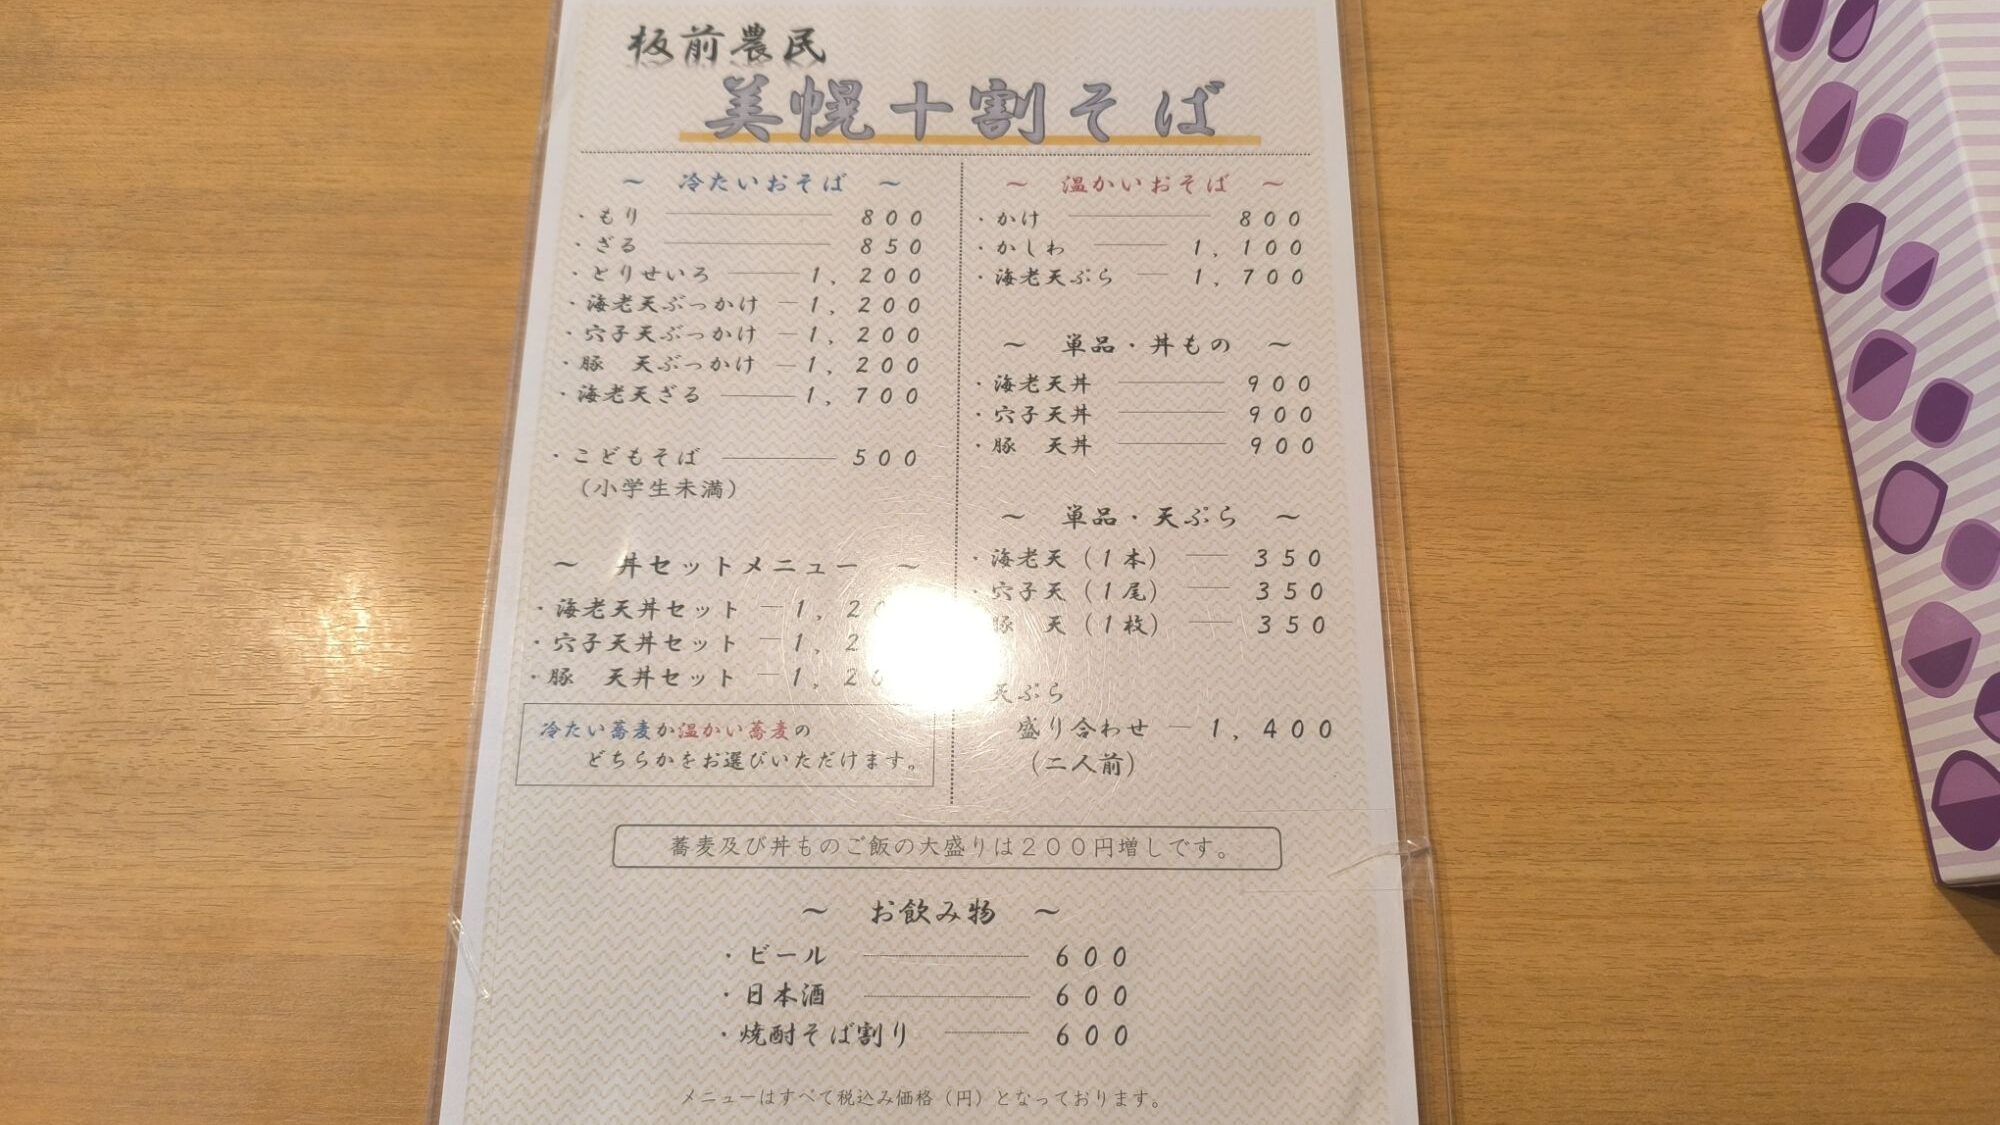 板前農民
美幌十割そば
～ 冷たいおそば ～
・もり 800
・ざる 850
・とりせいろ 1,200
・海老天ぶっかけ 1,200
・穴子天ぶっかけ 1,200
・豚 天ぶっかけ 1,200
・海老天ざる 1,700
・こどもそば 500
(小学生未満)
～ 丼セットメニュー ～
・海老天丼セット 1,2
・穴子天丼セット 1,2
・豚 天丼セット 1,2
冷たい蕎麦か温かい蕎麦の
どちらかをお選びいただけます。
～ 温かいおそば ～
・かけ 800
・かしわ 1,100
・海老天ぷら 1,700
～ 単品・丼もの ～
・海老天丼 900
・穴子天丼 900
・豚 天丼 900
～ 単品・天ぷら ～
・海老天(1本) 350
・穴子天(1尾) 350
豚 天(1枚) 350
天ぷら
盛り合わせ 1,400
(二人前)
蕎麦及び丼ものご飯の大盛りは200円増しです。
～ お飲み物 ～
・ビール 600
・日本酒 600
・焼酎そば割り 600
メニューはすべて税込み価格(円)となっております。